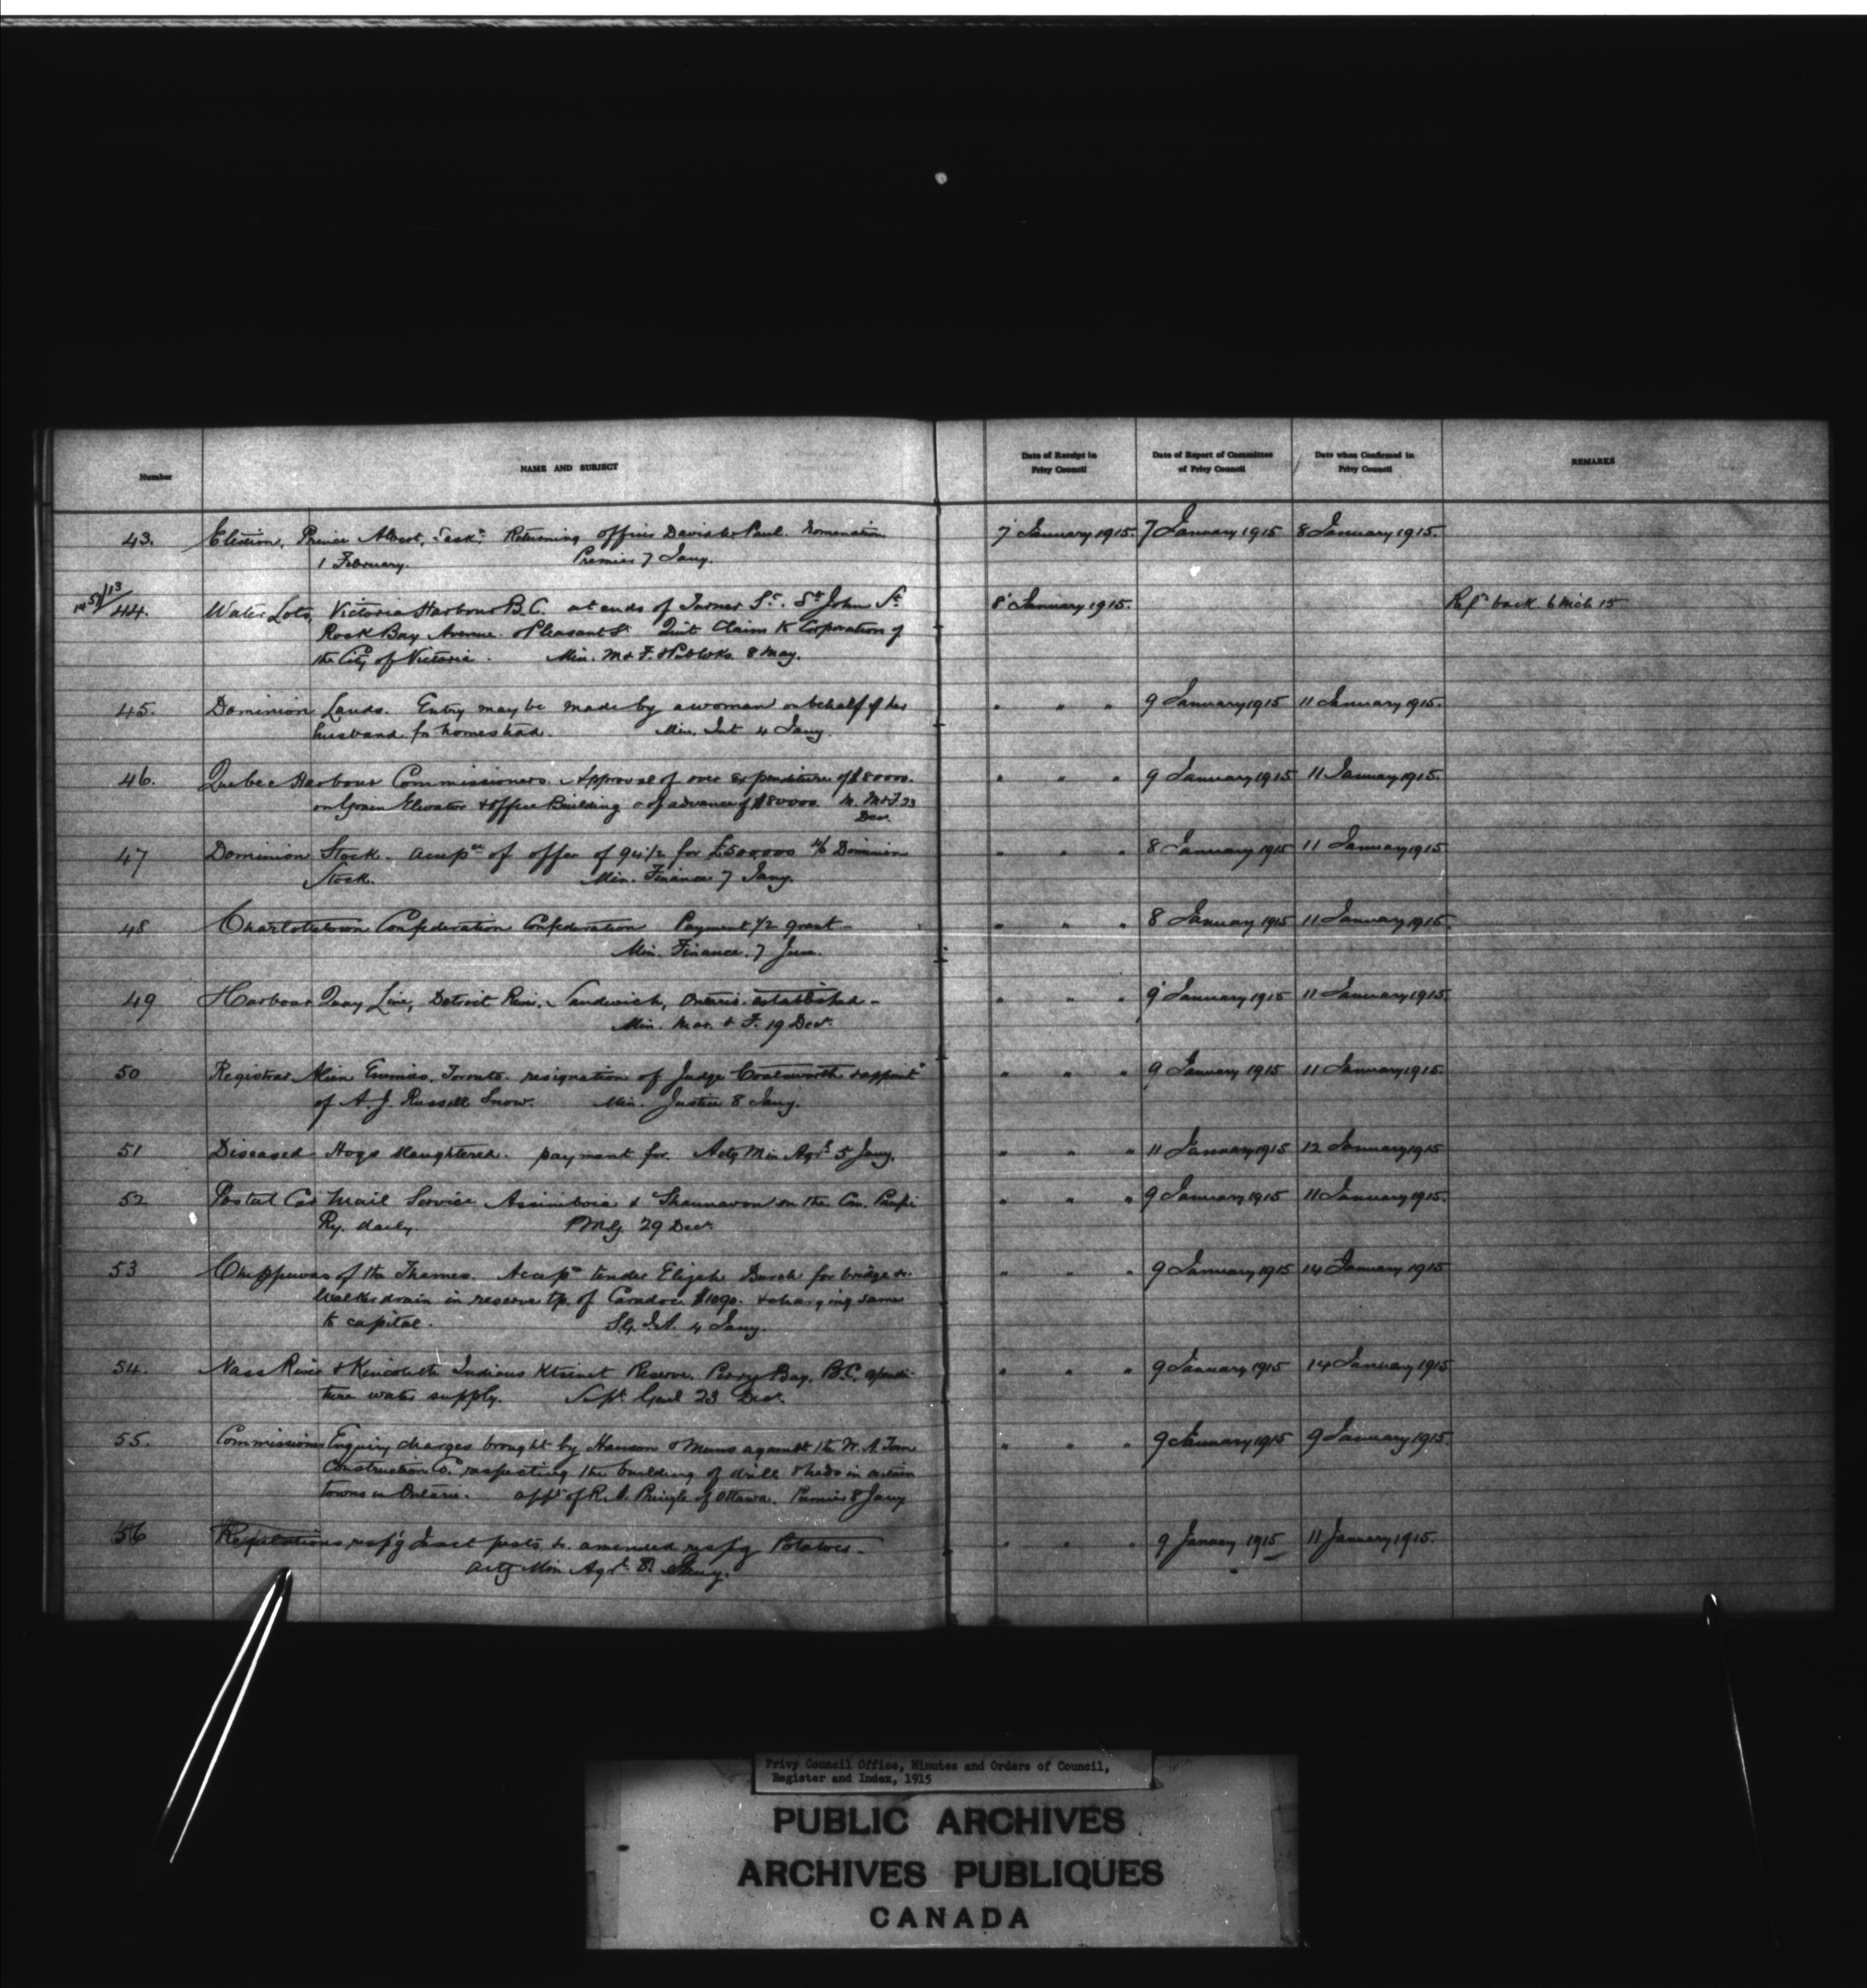 Number NAME AND SUBJECT Date of Receipt in Privy Council Date of Report of Committee of Privy Council Date when Confirmed in Privy Council REMARKS
43. Election, Prince Albert, Sask. Returning officer Paul. Nomination 7 January 1915. 7 January 1915 8 January 1915.
1 February. Premier 7 Jany.
44. Water Lots, Victoria Harbour B.C. at ends of Turner St. St John St. 8 January 1915. Refd back 6 Mch 15
Rock Bay Avenue & Pleasant St. Quit Claim to Corporation of
the City of Victoria. Min. M & F. & Pub Wks. 8 May.
45. Dominion Lands. Entry may be made by a woman on behalf of her " " " 9 January 1915 11 January 1915.
husband for homestead. Min. Int 4 Jany.
46. Quebec Harbour Commissioners. Approval of over expenditure of $80000. " " " 9 January 1915 11 January 1915.
on Grain Elevator & office Building & of advance of $80000. M. M&F 23
Decr.
47 Dominion Stock. of offer of 94 1/2 for £500000 Dominion " " " 8 January 1915 11 January 1915
Stock. Min. Finance 7 Jany.
48 Charlottetown Confederation Confederation Payment 1/2 grant - " " " 8 January 1915 11 January 1915.
Min. Finance. 7 Jan.
49 Harbour Quay Line, Detroit River, Sandwich, Ontario. established - " " " 9 January 1915 11 January 1915.
Min. Mar. & F. 19 Decr.
50 Registrar Alien Enemies, Toronto. resignation of Judge Coatsworth & appoint " " " 9 January 1915 11 January 1915.
of A. J. Russell Snow. Min. Justice 8 Jany.
51 Diseased Hogs slaughtered. payment for. Actg Min Agr. 5 Jany. " " " 11 January 1915 12 January 1915
52 Postal Car Mail Service Assiniboia & Shaunavon on the Can. Pacific " " " 9 January 1915 11 January 1915.
Ry. daily. PMG. 29 Decr.
53 Chippewas of the Thames. tender Elijah Burch for bridge " " " 9 January 1915 14 January 1915
drain in reserve tp. of Caradoc $1090. & charging same
to capital. S.G. I.A. 4 Jany.
54. Nass River & Kincolith Indians Reserve. Perry Bay, B.C. expendi- " " " 9 January 1915 14 January 1915
ture water supply. Supt Genl 23 Decr.
55. Commissioner Enquiry charges brought by Hanson & Munn against the W. A. " " " 9 January 1915 9 January 1915.
Construction Co. respecting the building of drill sheds in certain
towns in Ontario. appt of R. A. Pringle of Ottawa. Premier 8 Jany
56 Regulations resp'g Insect pests &c. amended resp'g Potatoes - " " " 9 January 1915 11 January 1915.
actg Min Agr. 8 Jany.
Privy Council Office, Minutes and Orders of Council,
Register and Index, 1915
PUBLIC ARCHIVES
ARCHIVES PUBLIQUES
CANADA